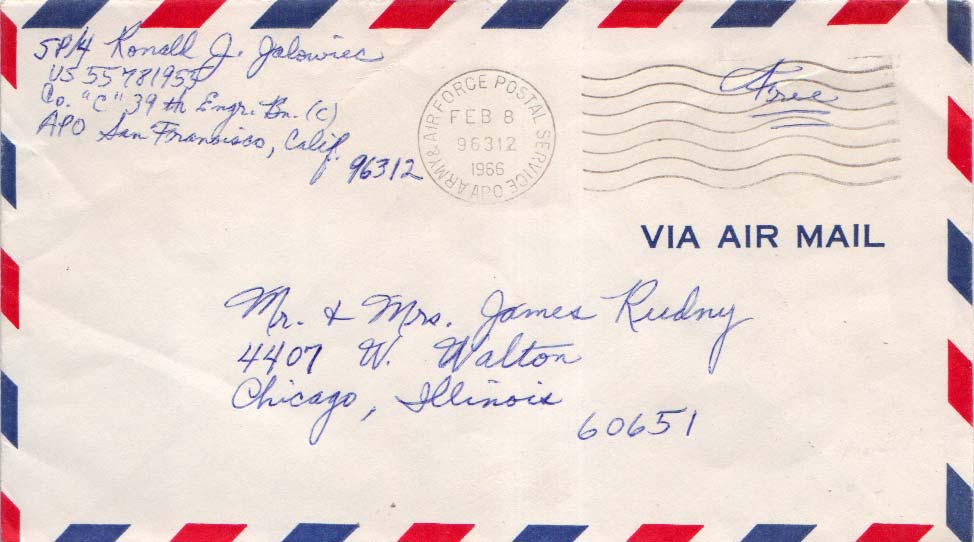 SP/4 Ronald J. Jalowiec
US 55781955
Co. "C" 39th Engr. Bn. (C)
APO San Francisco, Calif.
96312
ARMY & AIR FORCE POSTAL SERVICE APO
FEB 8
96312
1966
Free
VIA AIR MAIL
Mr. & Mrs. James Rudny
4407 W. Walton
Chicago, Illinois
60651